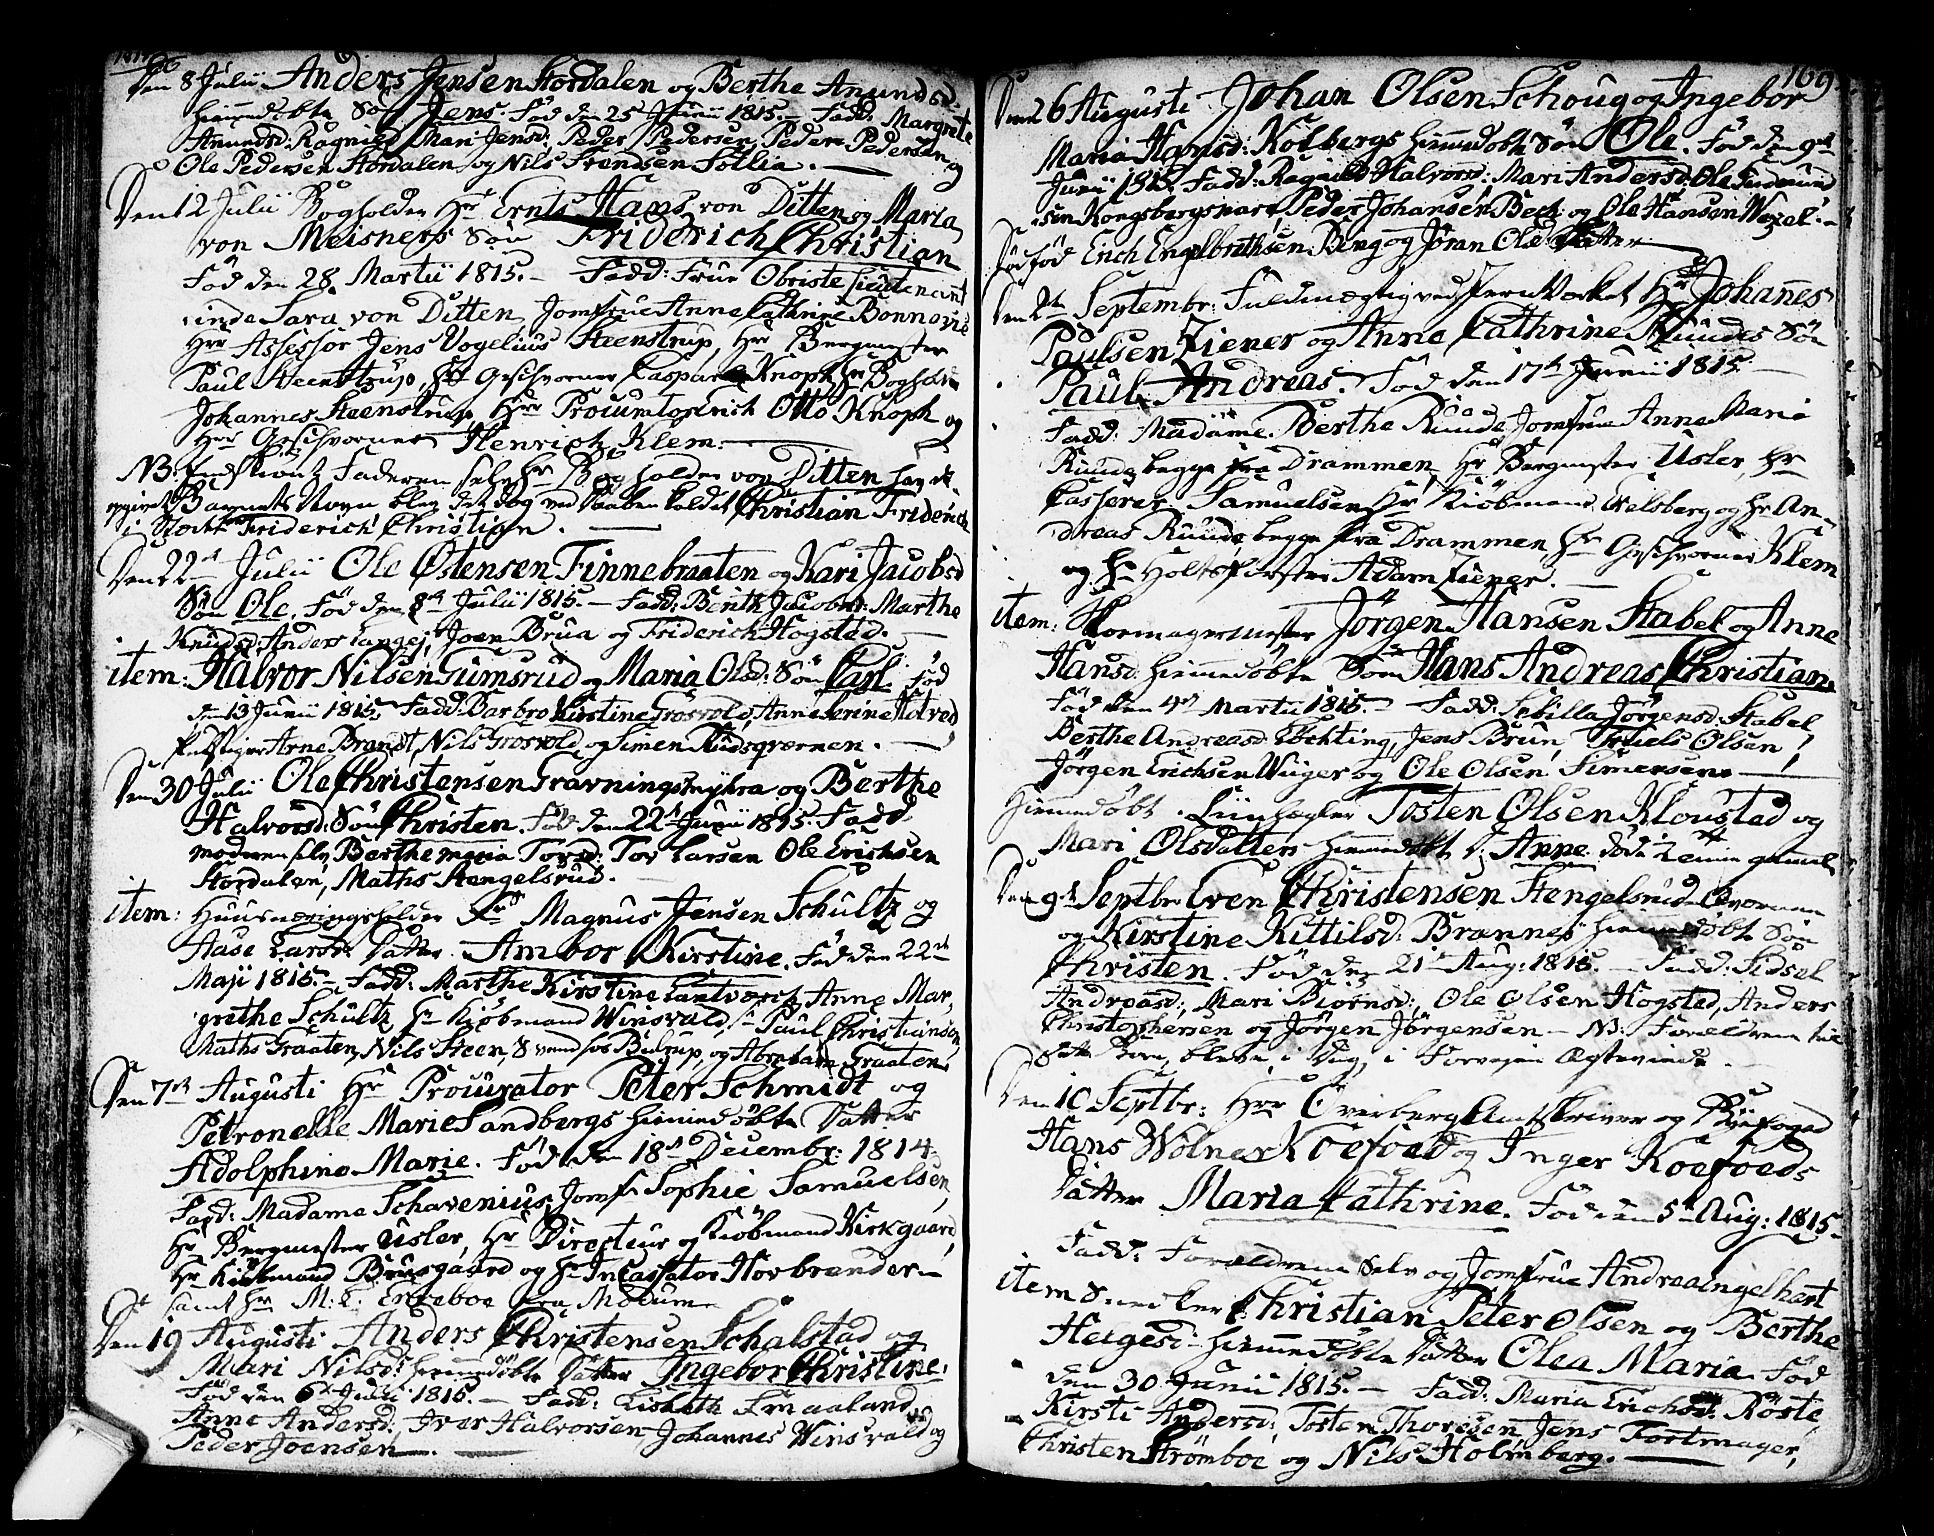 Den 8 Julii Anders Jensen Stordalen og Berthe Anundsd:
hiemmedøbte Søn Jens. Fød den 25 Junii 1815. — Fadd: Margrete
Anundsd: Ragnild, Mari Jensd: Peder Pedersen, Peder Pedersen
Ole Pedersen Stordalen og Nils Svendsen Sollia. —
Den 12 Julii Bogholder Hr Ernts Hans von Ditten og Maria
von Meisners Søn Friderich Christian
Fød den 28 Martii 1815. — Fadd: Frue Obristelieutenant
inde Sara von Ditten, Jomfrue Anne Cathrine Bonnevie
Hrr Assessor Jens Vogelius Steenstrup, Hr Bergmester
Paul Steenstrup, Hr Geschworner Caspar Knoph, Hr Bogholder
Johannes Steenstrup, Hrr Procurator Erich Otto Knoph og
Hrr Geschworner Henrich Klem. —
NB. Faderen selv Hr Bogholder von Ditten
opgivet Barnets Navn blev det dog ved Daaben kaldet Christian Friderich
i Stæden Friderich Christian. —
Den 22de Julii Ole Østensen Finnebraaten og Kari Jacobsd
Søn Ole. Fød den 8de Julii 1815. — Fadd: Berith Jacobsd: Marthe
Knudsd: Anders Lange, Joen Brua og Friderich Hogsted. —
item: Halvor Nilsen Gumsrud og Maria Olsd: Søn Carl. fød
den 13 Junii 1815. Fadd: Barbro Kirstine Grosvold, Anne Serine
Arne Brandt, Nils Grosvold, og Simen Rudsqværnen. —
Den 30 Julii Ole Christensen Gravningsmyhra og Berthe
Halvorsd: Søn Christen. Fød den 22de Junii 1815. Fadd
moderen selv, Berthe Maria Torsd: Tov Larsen Ole Erichsen
Stordalen, Maths Stengelsrud. —
item: Huusnæringsholder Magnus Jensen Schultz og
Aase Larsd: Datter Ambor Kirstine. Fød den 22de
Maji 1815. — Fadd: Marthe Kirstine Lantværch, Anne Mar-
grethe Schultz, Hr Kiöbmand Winsvald, Paul Christiansen,
Maths Graaten, Nils Steen, Svendsos Buterup, og Abraham Graaten
Den 7de Augusti Hr Procurator Peter Schmidt og
Petronelle Marie Sandbergs hiemmedøbte Datter
Adolphine Marie. Fød den 18de Decembr: 1814.
Fadd: Madame Schavenius, Jomf: Sophie Samuelsen,
Hr Bergmester Usler, Hr Directeur og Kiöbmand Kirkgaard,
Hr Kiöbmand Brusgaard og Hr Incassator Horbrander —
samt Hr M: C: fra Modum.
Den 19 Augusti Anders Christensen Schalstad og
Mari Nilsd: hiemmedøbte Datter Ingebor Christine.
Fød den 6te Julii 1815. — Fadd: Lisbeth Smaaland
Anne Andersd: Iver Halvorsen, Johannes Winsvald og
Peder Joensen. —
169
Den 26 Augusti Johan Olsen Schoug og Ingebor
Maria Hansd: Kolbergs hiemmedøbte Søn Ole. Fød den 9de
Junii 1815. Fadd: Ragnild Halvorsd: Mari Andersd: Ole
sen Kongsbergsmart Peder Johansen Bech og Ole Hansen Wezel. —
Dødfød Erich Engelbrethsen Berg og Jøran Ols: Datter
Den 2de Septembr: Fuldmægtig ved Jernværket Hr Johannes
Paulsen Ziener og Anne Cathrine Ruudes Søn
Paul Andreas. Fød den 17de Junii 1815. —
Fadd: Madame Berthe Ruude, Jomfrue Anne Maria
Ruude begge fra Drammen, Hr Bergmester Usler, Hr
Casserer Samuelsen, Hr Kiöbmand Exelsberg og Hr An-
dreas Ruude, begge fra Drammen, Hr Geschworner Klem
og Hr Holtsførster Adam Ziener. —
item: Skomagermester Jörgen Hansen Stabel og Anne
Hansd: hiemmedøbte Søn Hans Andreas Christian.
Fød den 4de Martii 1815. — Fadd: Sebilla Jörgensd: Stabel
Berthe Andreasd: Cochting, Jens Brun, Truels Olsen
Jörgen Erichsen Wüger og Ole Olsen Simensen. —
Hiemmedøbt Liinhegler Tosten Olsen Kloustad og
Mari Olsdatters hiemmedøbt D: Anne. død 2 gammel
Den 9de Septbr: Even Christensen Stengelsrud
og Kirstine Kittilsd: Brænnes hiemmedøbte Søn
Christen. Fød den 21de Aug: 1815. — Fadd: Sidsel
Andreasd:, Mari Biörnsd:, Ole Olsen Hogsted, Anders
Christophersen og Jörgen Jörgensen — NB: Forældrene til
dette Barn, bleve, i Dag, i Forvejen Ægteviede.
Den 10 Septbr: Hrr Overbergamtskriver og Byefoged
Hans Wölner Koefoed og Inger Koefoeds
Datter Maria Cathrine. Fød den 5de Aug: 1815.
Fadd: Forældrene selv og Jomfrue Andrea Ingelhart
item Snedker Christian Peter Olsen og Berthe
Helgesd: hiemmedøbte Datter Olea Maria. Fød
den 30 Junii 1815. — Fadd: Maria Erichsd: Röste,
Kirsti Andersd:, Tosten Thoresen, Jens Fortmager,
Christen Strömboe og Nils Holmberg. —